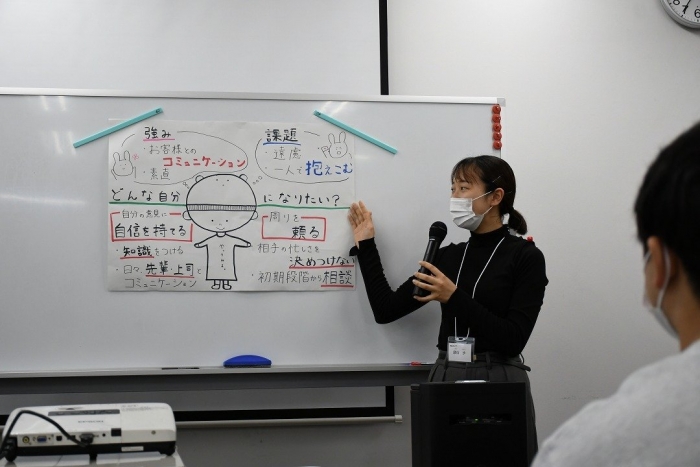 強み
・お客様との
コミュニケーション
・素直
課題
・遠慮
・一人で抱えこむ
どんな自分になりたい？
自分の意見に
自信を持てる
・知識をつける
・日々、先輩・上司と
コミュニケーション
周りを
頼る
相手の忙しさを
決めつけない
・初期段階から相談